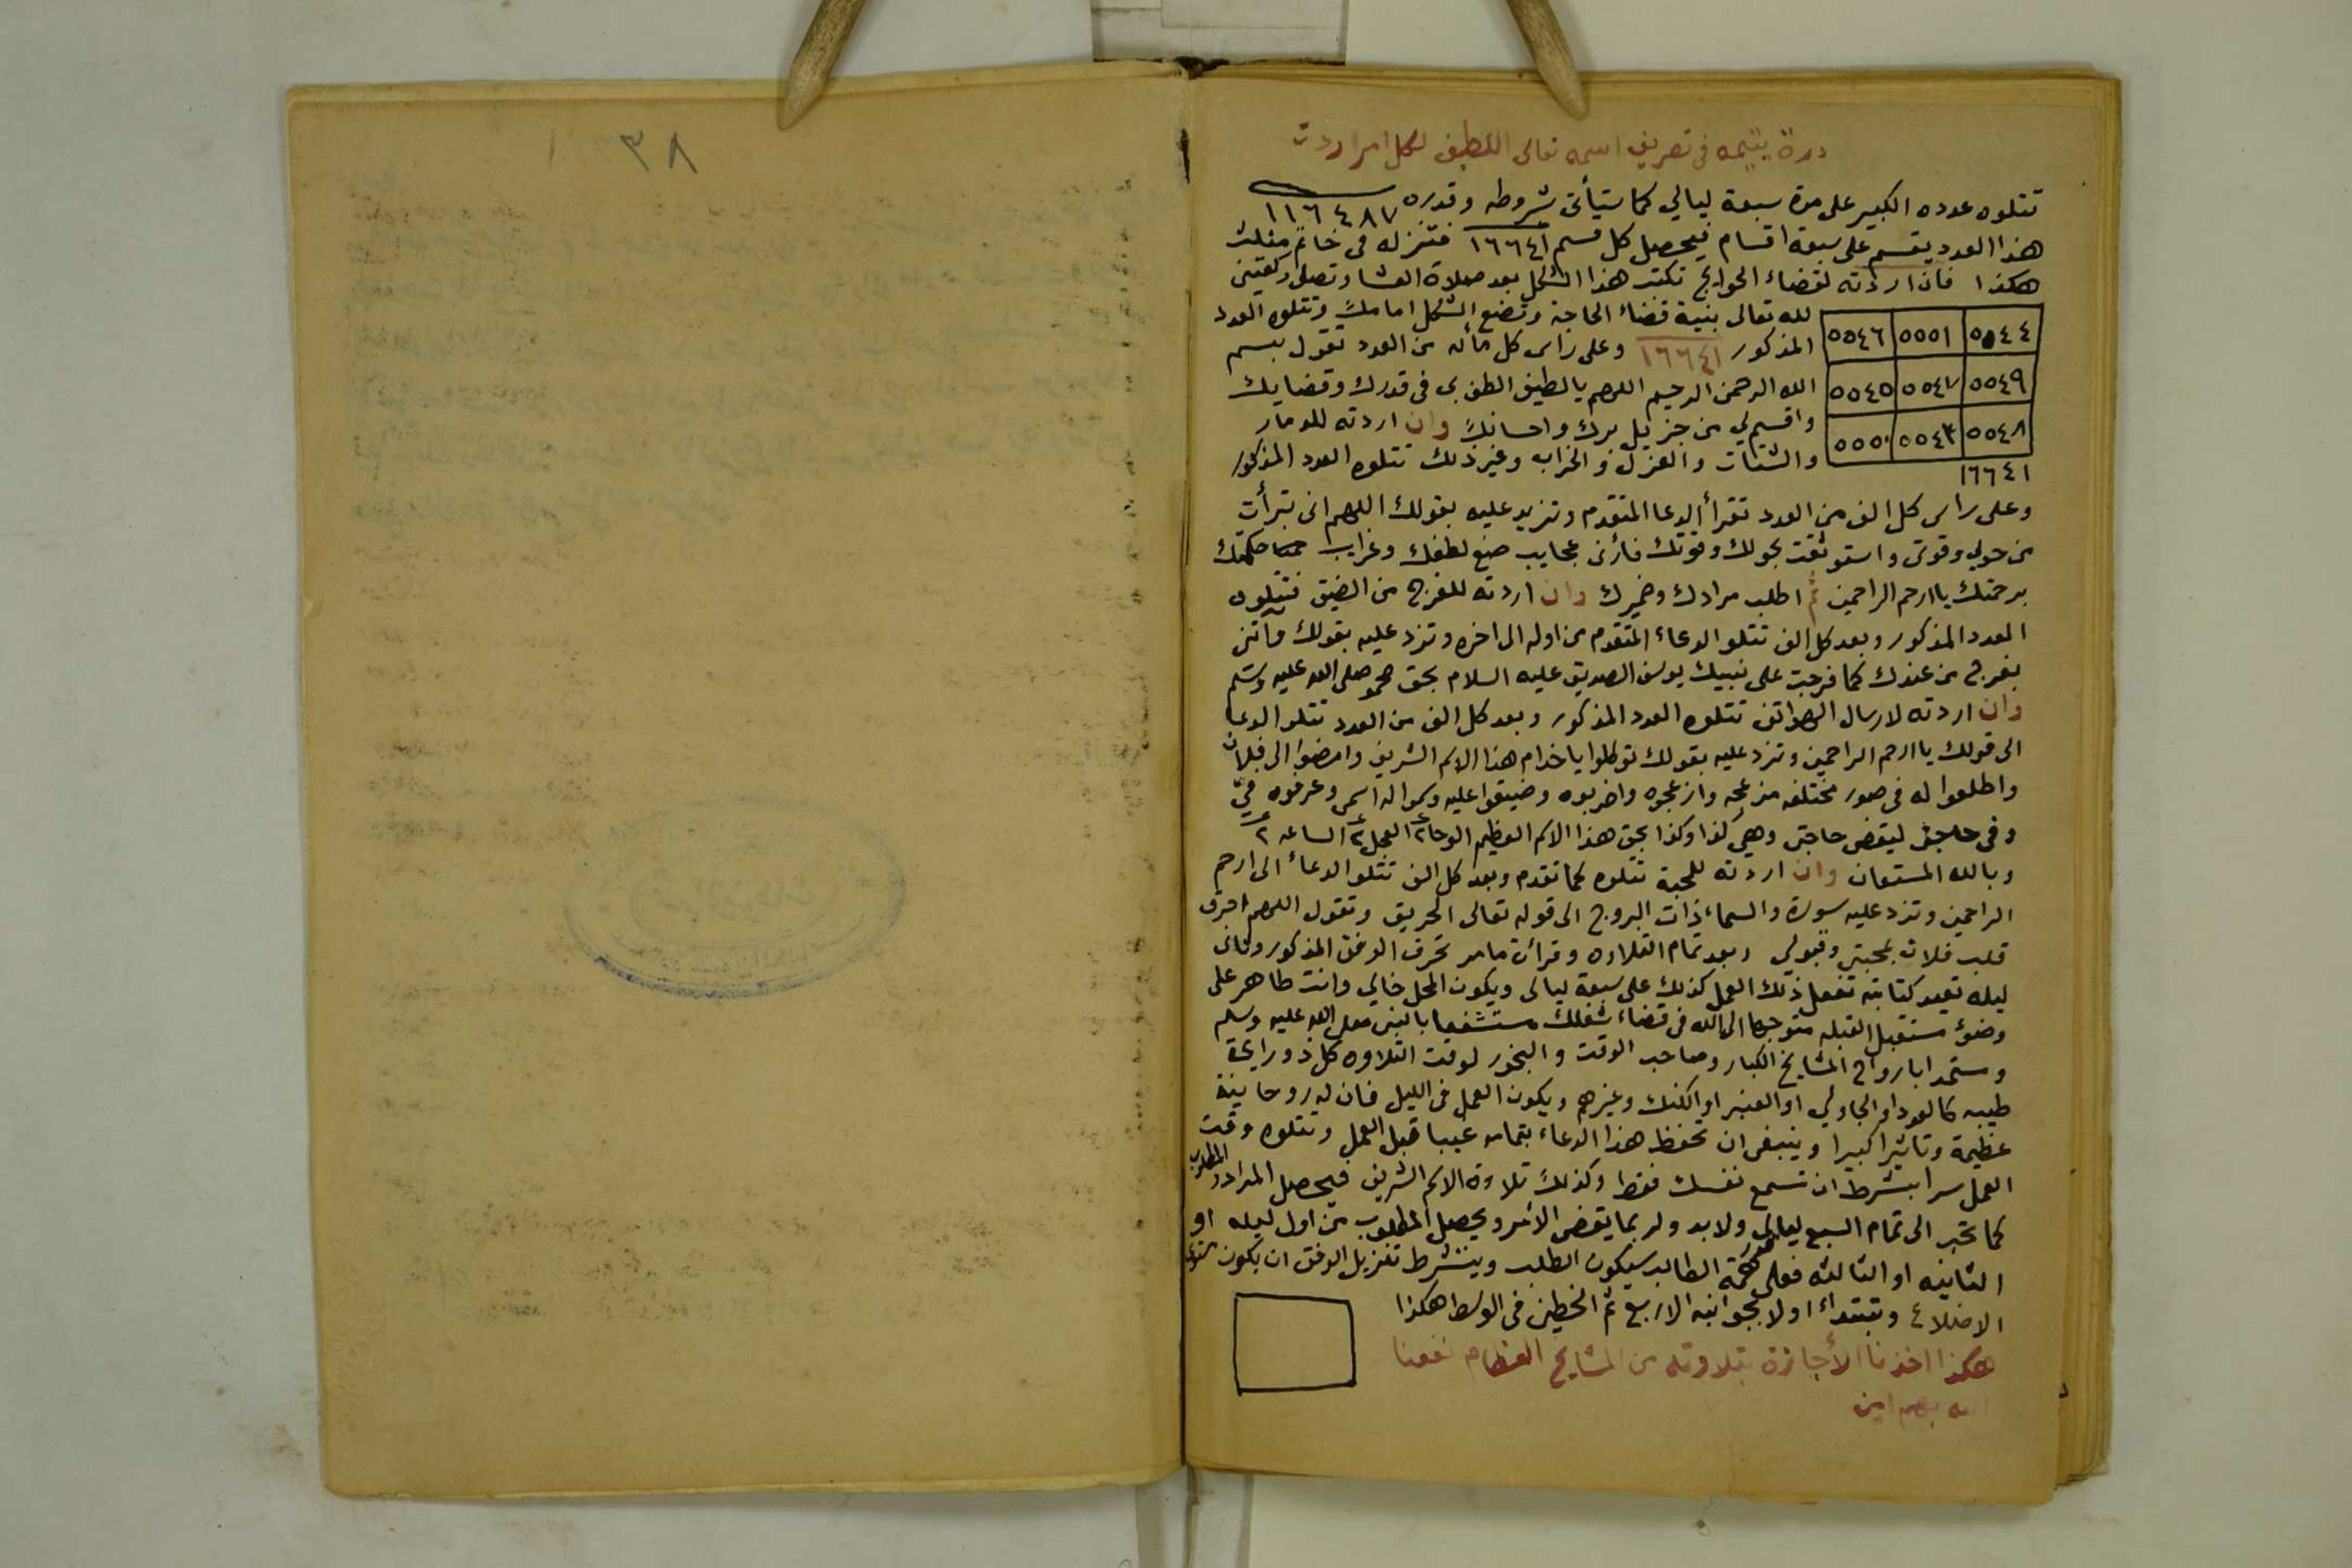 درة يتيمه فى تصريف اسمه تعالى اللطيف لكل امر اردت
تتلوه عدده الكبير على مدة سبعة ليالي كما ستيأتى شروطه وقدره ١١٦٤٨٧
هذا العدد يقسم على سبعة اقسام فيحصل كل قسم ١٦٦٤١ فتنزله فى خاتم مثلث
هكذا فان اردته لقضاء الحوايج تكتب هذا الشكل بعد صلاة العشا وتصلى ركعتين
لله تعالى بنية قضاء الحاجة وتضع الشكل امامك وتتلوه العدد
المذكور ١٦٦٤١ وعلى راس كل مأئه من العدد تقول بسم
الله الرحمن الرحيم اللهم يالطيف الطف بى فى قدرك وقضايك
واقسم لي من جزيل برك واحسانك وان اردته للدمار
والشتات والعزل والخراب وغير ذلك تتلوه العدد المذكور
٥٥٤٤ ٥٥٥١ ٥٥٤٦
٥٥٤٩ ٥٥٤٧ ٥٥٤٥
٥٥٤٨ ٥٥٤٣ ٥٥٥٠
١٦٦٤١
وعلى راس كل الف من العدد تقرأ الدعا المتقدم وتزيد عليه بقولك اللهم انى تبرأت
من حولي وقوتى واستوثقت بحولك وقوتك فأرنى عجايب صنع لطفك وغرايب حكمتك
برحمتك ياارحم الراحمين ثم اطلب مرادك وضميرك وان اردته للفرج من الضيق فتتلوه
العدد المذكور وبعد كل الف تتلو الدعاء المتقدم من اوله الى اخره وتزد عليه بقولك وآتنى
بفرج من عندك كما فرجت على نبيك يوسف الصديق عليه السلام بحق محمد صلى الله عليه وسلم
وان اردته لارسال الهواتف تتلوه العدد المذكور وبعد كل الف من العدد تتلو الدعا
الى قولك ياارحم الراحمين وتزد عليه بقولك توكلوا ياخدام هذا الاسم الشريف وامضوا الى فلان
واطلعوا له فى صور مختلفه مزعجه وازعجوه واضربوه وضيقوا عليه وسموا له اسمى وعرفوه فىّ
وفى حاجتى ليقضى حاجتى وهي كذا وكذا بحق هذا الاسم العظيم الوحا ٢ العجل ٢ الساعه ٢
وبالله المستعان وان اردته للمحبة تتلوه كما تقدم وبعد كل الف تتلو الدعاء الى ارحم
الراحمين وتزد عليه سورة والسماء ذات البروج الى قوله تعالى الحريق وتقول اللهم احرق
قلب فلان بمحبتى وقبولي وبعد تمام التلاوه وقرائت مامر تحرق الوفق المذكور وثانى
ليله تعيد كتابته تفعل ذلك العمل كذلك على سبعة ليالى ويكون المحل خالي وانت طاهر على
وضوء مستقبل القبله متوجها الى الله فى قضاء شغلك مستشفعا بالنبى صلى الله عليه وسلم
ومستمدا بارواح المشايخ الكبار وصاحب الوقت والبخور لوقت التلاوه كل ذو رايحة
طيبه كالعود او الجاولي او العنبر او الكنك وغيرهم ويكون العمل فى الليل فان له روحانية
عظيمة وتاثيرا كبيرا وينبغى ان تحفظ هذا الدعاء بتمامه غيبا قبل العمل وتتلوه وقت
العمل سرا بشرط ان تسمع نفسك فقط وكذلك تلاوة الاسم الشريف فيحصل المراد والمطلوب
كما تحبر الى تمام السبع ليالي ولابد ولربما يقضى الأمر ويحصل المطلوب من اول ليله او
الثانيه او الثالثه فعلى قدر همة الطالب سيكون الطلب ويشترط تنزيل الوفق ان يكون
الاضلاع وتبتداء اولا بجوانبه الاربع ثم الخطين فى الوسط هكذا
هكذا اخذنا الأجازة بتلاوته من المشايخ العظام نفعنا
الله بهم امين
٣٨